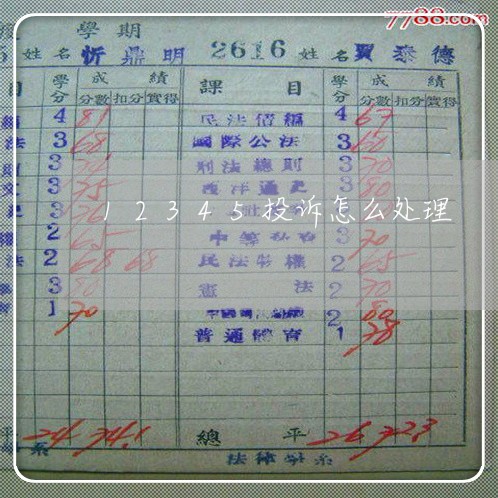 7788.com
學期
姓名 忻鼎明 2616 姓名 賈泰德
目 學分 成績 課目 學分 成績
分數 扣分 實得 分數 扣分 實得
4 81 民法債編 4 67
法 3 68 國際公法 3 60
3 刑法總則 3 70
3 75 西洋通史 3 80
12345投诉怎么处理
2 65 3 70
法 2 68 68 民法物權 2 65
3 80 憲法 2 70
1 70 2 80
普通體育 1 78
平 24 74.1 總平 26 72.3
系 法律學系